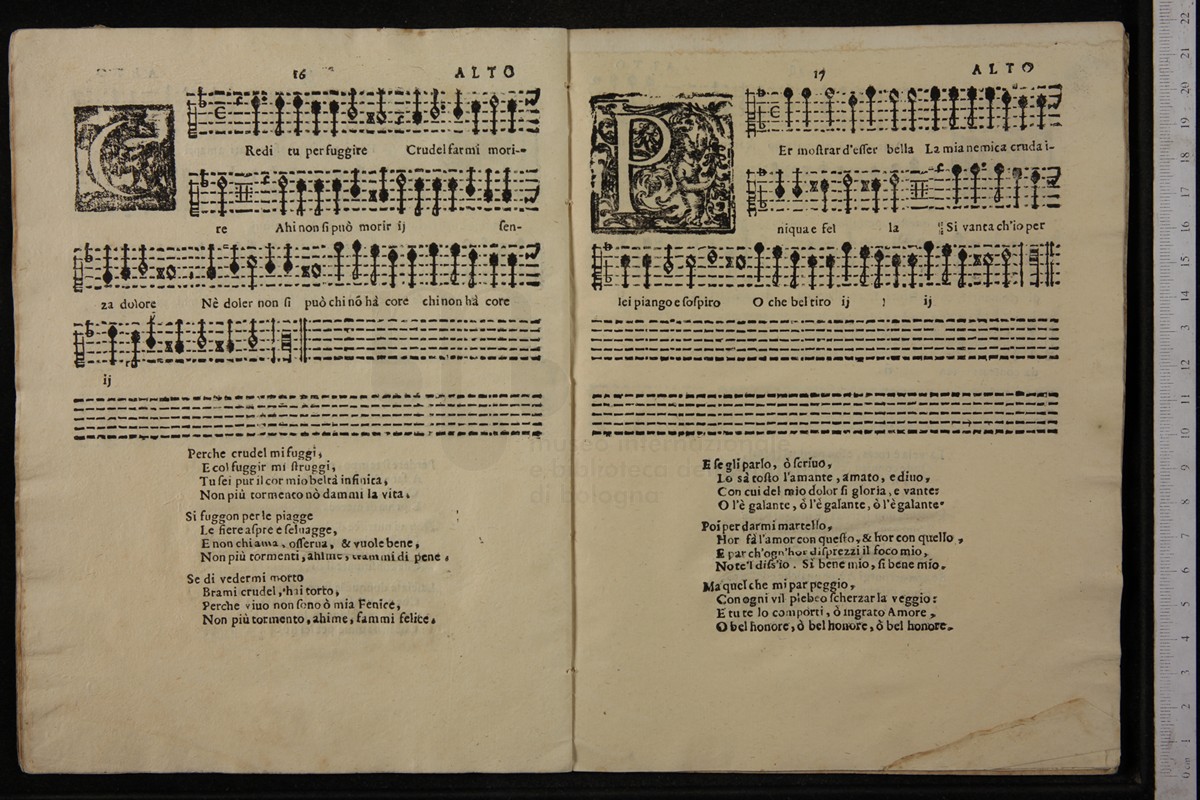 16
ALTO
CRedi tu per fuggire Crudel farmi mori-
re Ahi non ſi può morir ij ſen-
za dolore Nè doler non ſi può chi nõ hà core chi non hà core
ij
Perche crudel mi fuggi,
E col fuggir mi ſtruggi,
Tu ſei pur il cor mio beltà infinita,
Non più tormento nò dammi la vita.
Si fuggon per le piagge
Le fiere aſpre e ſeluagge,
E non chi ama, oſſerua, & vuole bene,
Non più tormenti, ahime, trammi di pene.
Se di vedermi morto
Brami crudel, hai torto,
Perche viuo non ſono ò mia Fenice,
Non più tormento, ahime, fammi felice.
17
ALTO
PEr moſtrar d'eſſer bella La mia nemica cruda i-
niqua e fel la ij Si vanta ch'io per
lei piango e ſoſpiro O che bel tiro ij ! ij
E ſe gli parlo, ò ſcriuo,
Lo sà toſto l'amante, amato, e diuo,
Con cui del mio dolor ſi gloria, e vante:
O l'è galante, ò l'è galante, ò l'è galante.
Poi per darmi martello,
Hor fà l'amor con queſto, & hor con quello,
E par ch'ogn'hor diſprezzi il foco mio,
Note'l diſs'io. Si bene mio, ſi bene mio.
Ma quel che mi par peggio,
Con ogni vil plebeo ſcherzar la veggio:
E tu te lo comporti, ò ingrato Amore,
O bel honore, ò bel honore, ò bel honore.
museo internazionale
e biblioteca de
di bologna
0 cm 1 2 3 4 5 6 7 8 9 10 11 12 13 14 15 16 17 18 19 20 21 22